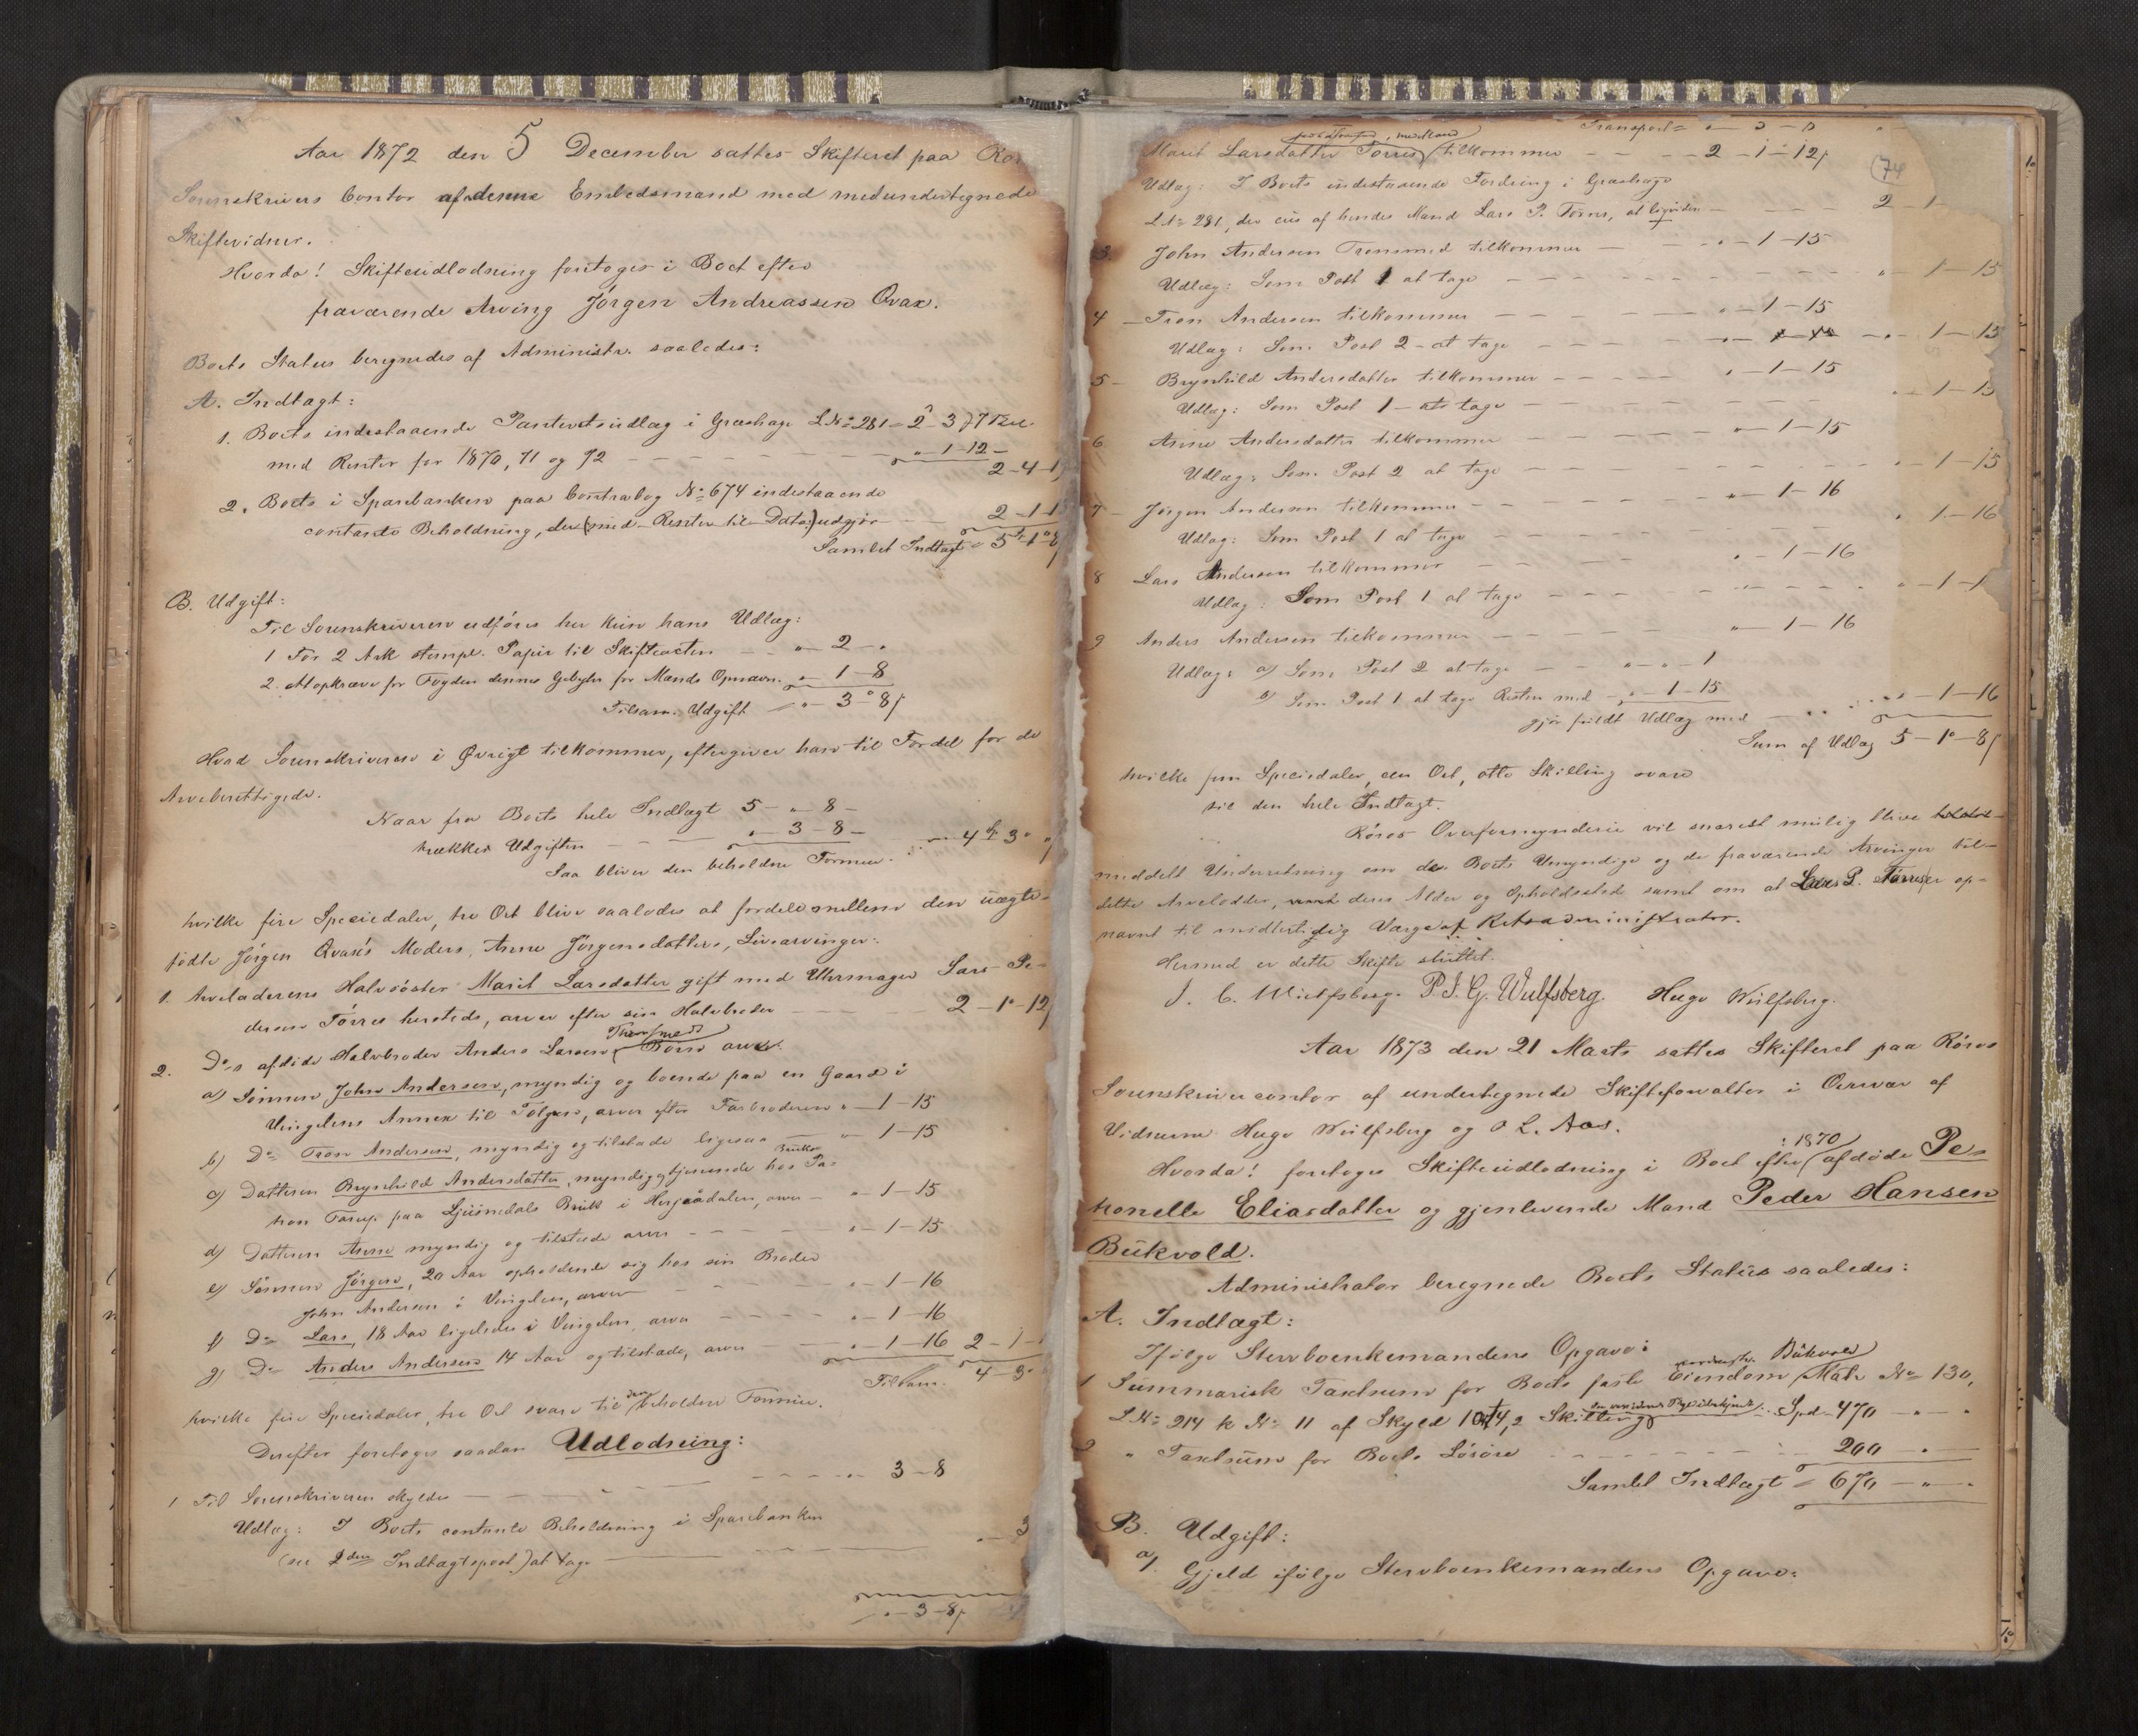 Aar 1872 den 5 December sattes Skifteret paa
Sorenskrivers Contor af denne Embedsmand med medundertegnede
Skiftevidner.
Hvorda! Skifteudlodning foretoges i Boet efter
fraværende Arving Jörgen Andreassen Qvax.
Boets Status beregnedes af Administr. saaledes:
A. Indtægt:
1. Boets indestaaende Panteretsudlæg i Græshage L.N: 281 = 2 - 3
med Renter for 1870, 71 og 72 - - - " 1-12 -
2-4-
2. Boets i Sparebanken paa Contrabog No: 674 indestaaende
contante Beholdning, der (med Renter til Dato:) udgjør 2-1-
Samlet Indtægt = 5-1-8
B. Udgift:
Til Sorenskriveren udføres her kun hans Udlæg:
1 For 2 Ark stempl. Papir til Skifteacten - - " 2 - "
2. At opkræve for Fogden dennes Gebyhr for Mænds Opnævn. " 1-8
Tilsam. Udgift " - 3-8
Hvad Sorenskriveren i Øvrigt tilkommer, eftergiver han til Fordel for de
Arveberettigede.
Naar fra Boets hele Indtægt 5 - " 8 -
trækkes Udgiften - - - " 3-8 -
Saa bliver den beholdne Formue. - 4 3 "
hvilke fire Speciedaler, tre Ort blive saaledes at fordele mellem den uægte-
födte Jörgen Qvax's Moders, Anne Jörgensdatters, Livsarvinger:
1. Arveladerens Halvsöster Marit Larsdatter gift med Uhrmager Lars Pe-
dersen Törres hersteds, arver efter sin Halvbroder - - 2-1-12
Tronsmed
2. Do's afdöde Halvbroder Anders Larsen Börn arve.
a) Sönnen John Andersen, myndig og boende paa en Gaard i
Vingelens Annex til Tolgen, arver efter Farbroderen " 1-15
b) Do Tron Andersen, myndig og tilstæde ligesaa " 1-15
c) Datteren Brynhild Andersdatter, myndig og tjenende hos Pa-
tron Farup paa Ljusnedals Bruk i Herjeådalen, arver - " 1-15
d) Datteren Anne myndig og tilstæde arver - - " 1-15
e) Sönnen Jörgen, 20 Aar opholdende sig hos sin Broder
John Andersen i Vingelen, arver - - " 1-16
f) Do Lars, 18 Aar ligeledes i Vingelen, arver - - " 1-16
g) Do Anders Andersen 14 Aar og tilstæde, arver - - " 1-16 2-1-
Tilsam. 4-3
hvilke fire Speciedaler, tre Ort svare til den beholdne Formue.
Derefter foretoges saadan Udlodning:
1 Til Sorenskriveren skyldes - - - 3-8
Udlæg: I Boets contante Beholdning i Sparebanken
(see 2den Indtægtspost) at tage - - " 3
" - 3-8
Transport =
74
Marit Larsdatter Törres tilkommer - - - 2-1-12
Udlæg: I Boets indestaaende Fordring i Græshage
L.No 281, der eies af hendes Mand Lars P. Törres, at liqvidere - - 2-1
3 John Andersen Tronsmed tilkommer - - " 1-15
Udlæg: Som Post 1 at tage - - " 1-15
4 Tron Andersen tilkommer - - " 1-15
Udlæg: Som Post 2 at tage - - " 1-15
5 Brynhild Andersdatter tilkommer - - " 1-15
Udlæg: Som Post 1 at tage - - " 1-15
6 Anne Andersdatter tilkommer - - " 1-15
Udlæg: Som Post 2 at tage - - " 1-15
7 Jørgen Andersen tilkommer - - " 1-16
Udlæg: Som Post 1 at tage - - " 1-16
8 Lars Andersen tilkommer - - " 1-16
Udlæg: Som Post 1 at tage - - " 1-1
9 Anders Andersen tilkommer - - " 1-16
Udlæg: a) Som Post 2 at tage - - " " 1
b) Som Post 1 at tage Resten med " 1-15
gjør fuldt Udlæg med - - " 1-16
Sum af Udlæg 5-1-8
hvilke fem Speciedaler, een Ort, otte Skilling svare
til den hele Indtægt.
Röros Overformynderie vil snarest mulig blive
meddelt Underretning om de Boets Umyndige og de fraværende Arvinger til-
delte Arvelodder, deres Alder og Opholdssted samt om at Lars P. Törres er op-
nævnt til midlertidig Værge af Retsadministrator.
Hermed er dette Skifte sluttet.
J. C. Wulfsberg. P. J. G. Wulfsberg. Hugo Wulfsberg.
Aar 1873 den 21 Marts sattes Skifteret paa Röros
Sorenskrivercontor af undertegnede Skifteforvalter i Overvær af
Vidnerne Hugo Wulfsberg og O L. Aas.
Hvorda! foretoges Skifteudlodning i Boet efter i 1870 afdöde Pe-
tronelle Eliasdatter og gjenlevende Mand Peder Hansen
Bukvold.
Administrator beregnede Boets Status saaledes:
A. Indtægt:
Ifølge Stervboenkemandens Opgave:
1 Summarisk Taxtsum for Boets faste Eiendom Bukvold Mats No 130,
L.No 214 k No 11 af Skyld 1 Ort 4,2 Skilling - Spd. 470 " "
2 " Taxtsum for Boets Lösöre - - - 200 "
Samlet Indtægt = 670 " "
B. Udgift:
a) Gjeld ifölge Stervboenkemandens Opgave: